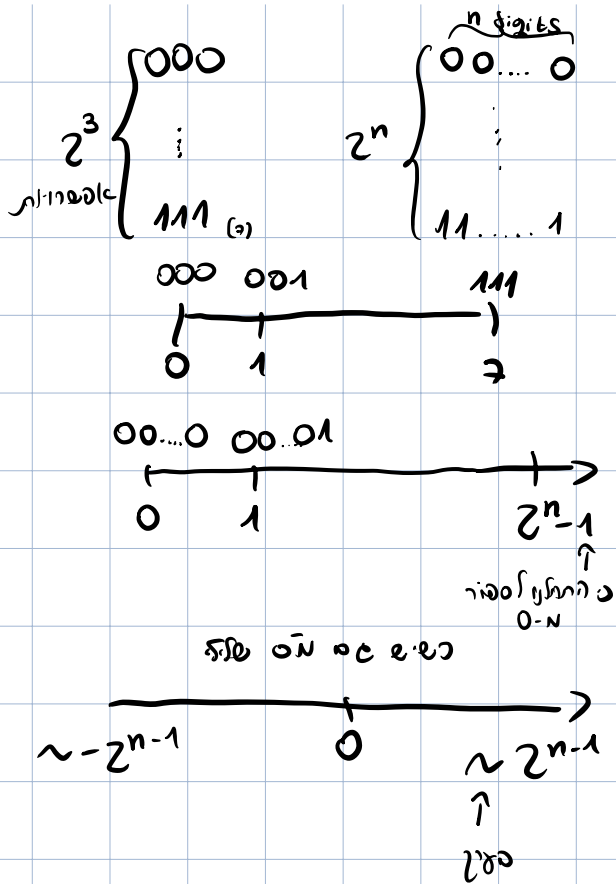 n digits
000
00....0
2^3
2^n
אפשרויות
111 (7)
11.....1
000 001 111
0 1 7
00....0 00...01
0 1 2^n-1
↑
כי התחלנו לספור
מ-0
כשיש גם מס' שלילי
~ -2^{n-1} 0 ~ 2^{n-1}
↑
בערך